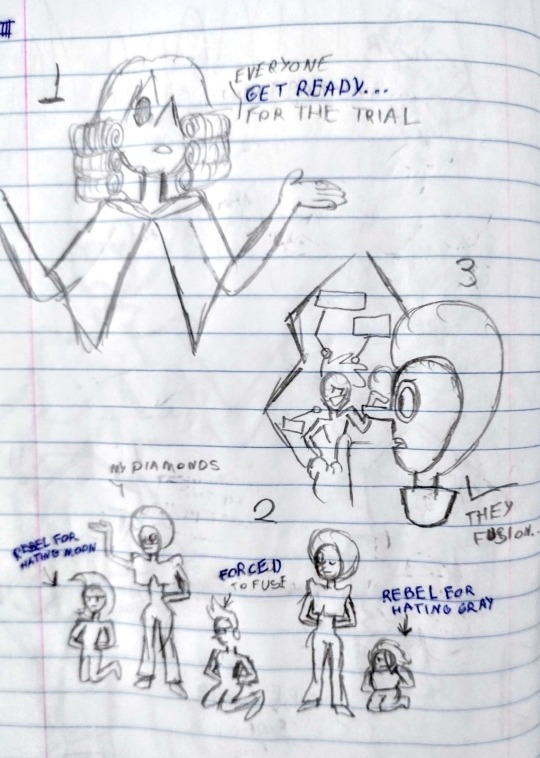 1
EVERYONE
GET READY...
FOR THE TRIAL
3
THEY
FUSION...
2
MY DIAMONDS
REBEL FOR
HATING MOON
FORCED
TO FUSE
REBEL FOR
HATING GRAY